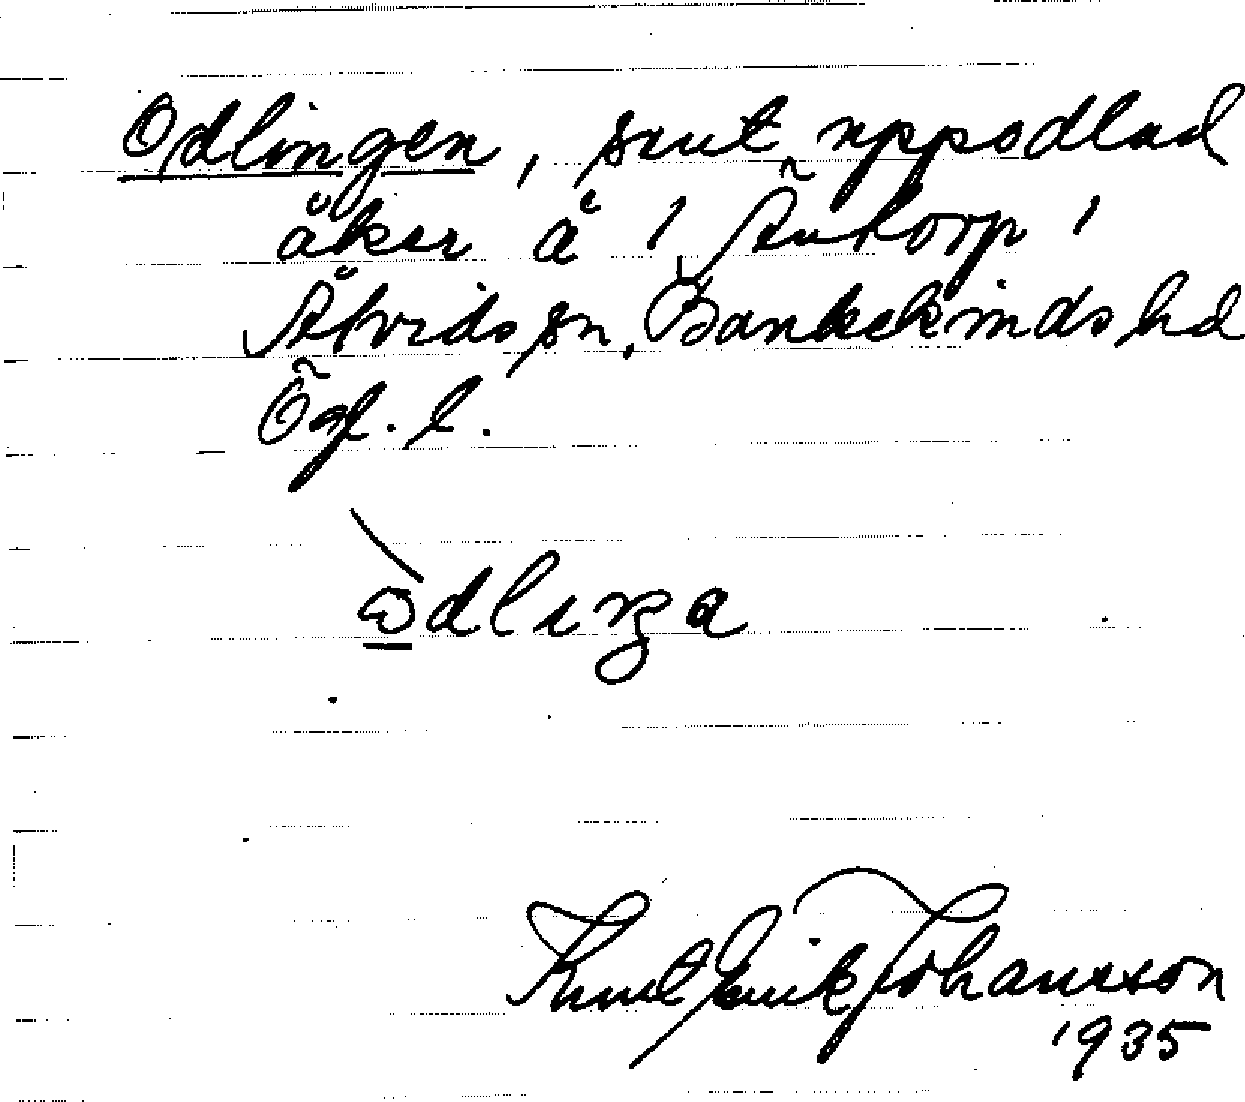 Odlingen, sent uppodlad
åker å / Änkorp i
Åtvids sn, Bankekinds hd
Ögl. l.
ɷdlıŋa
Knut Erik Johansson
1935